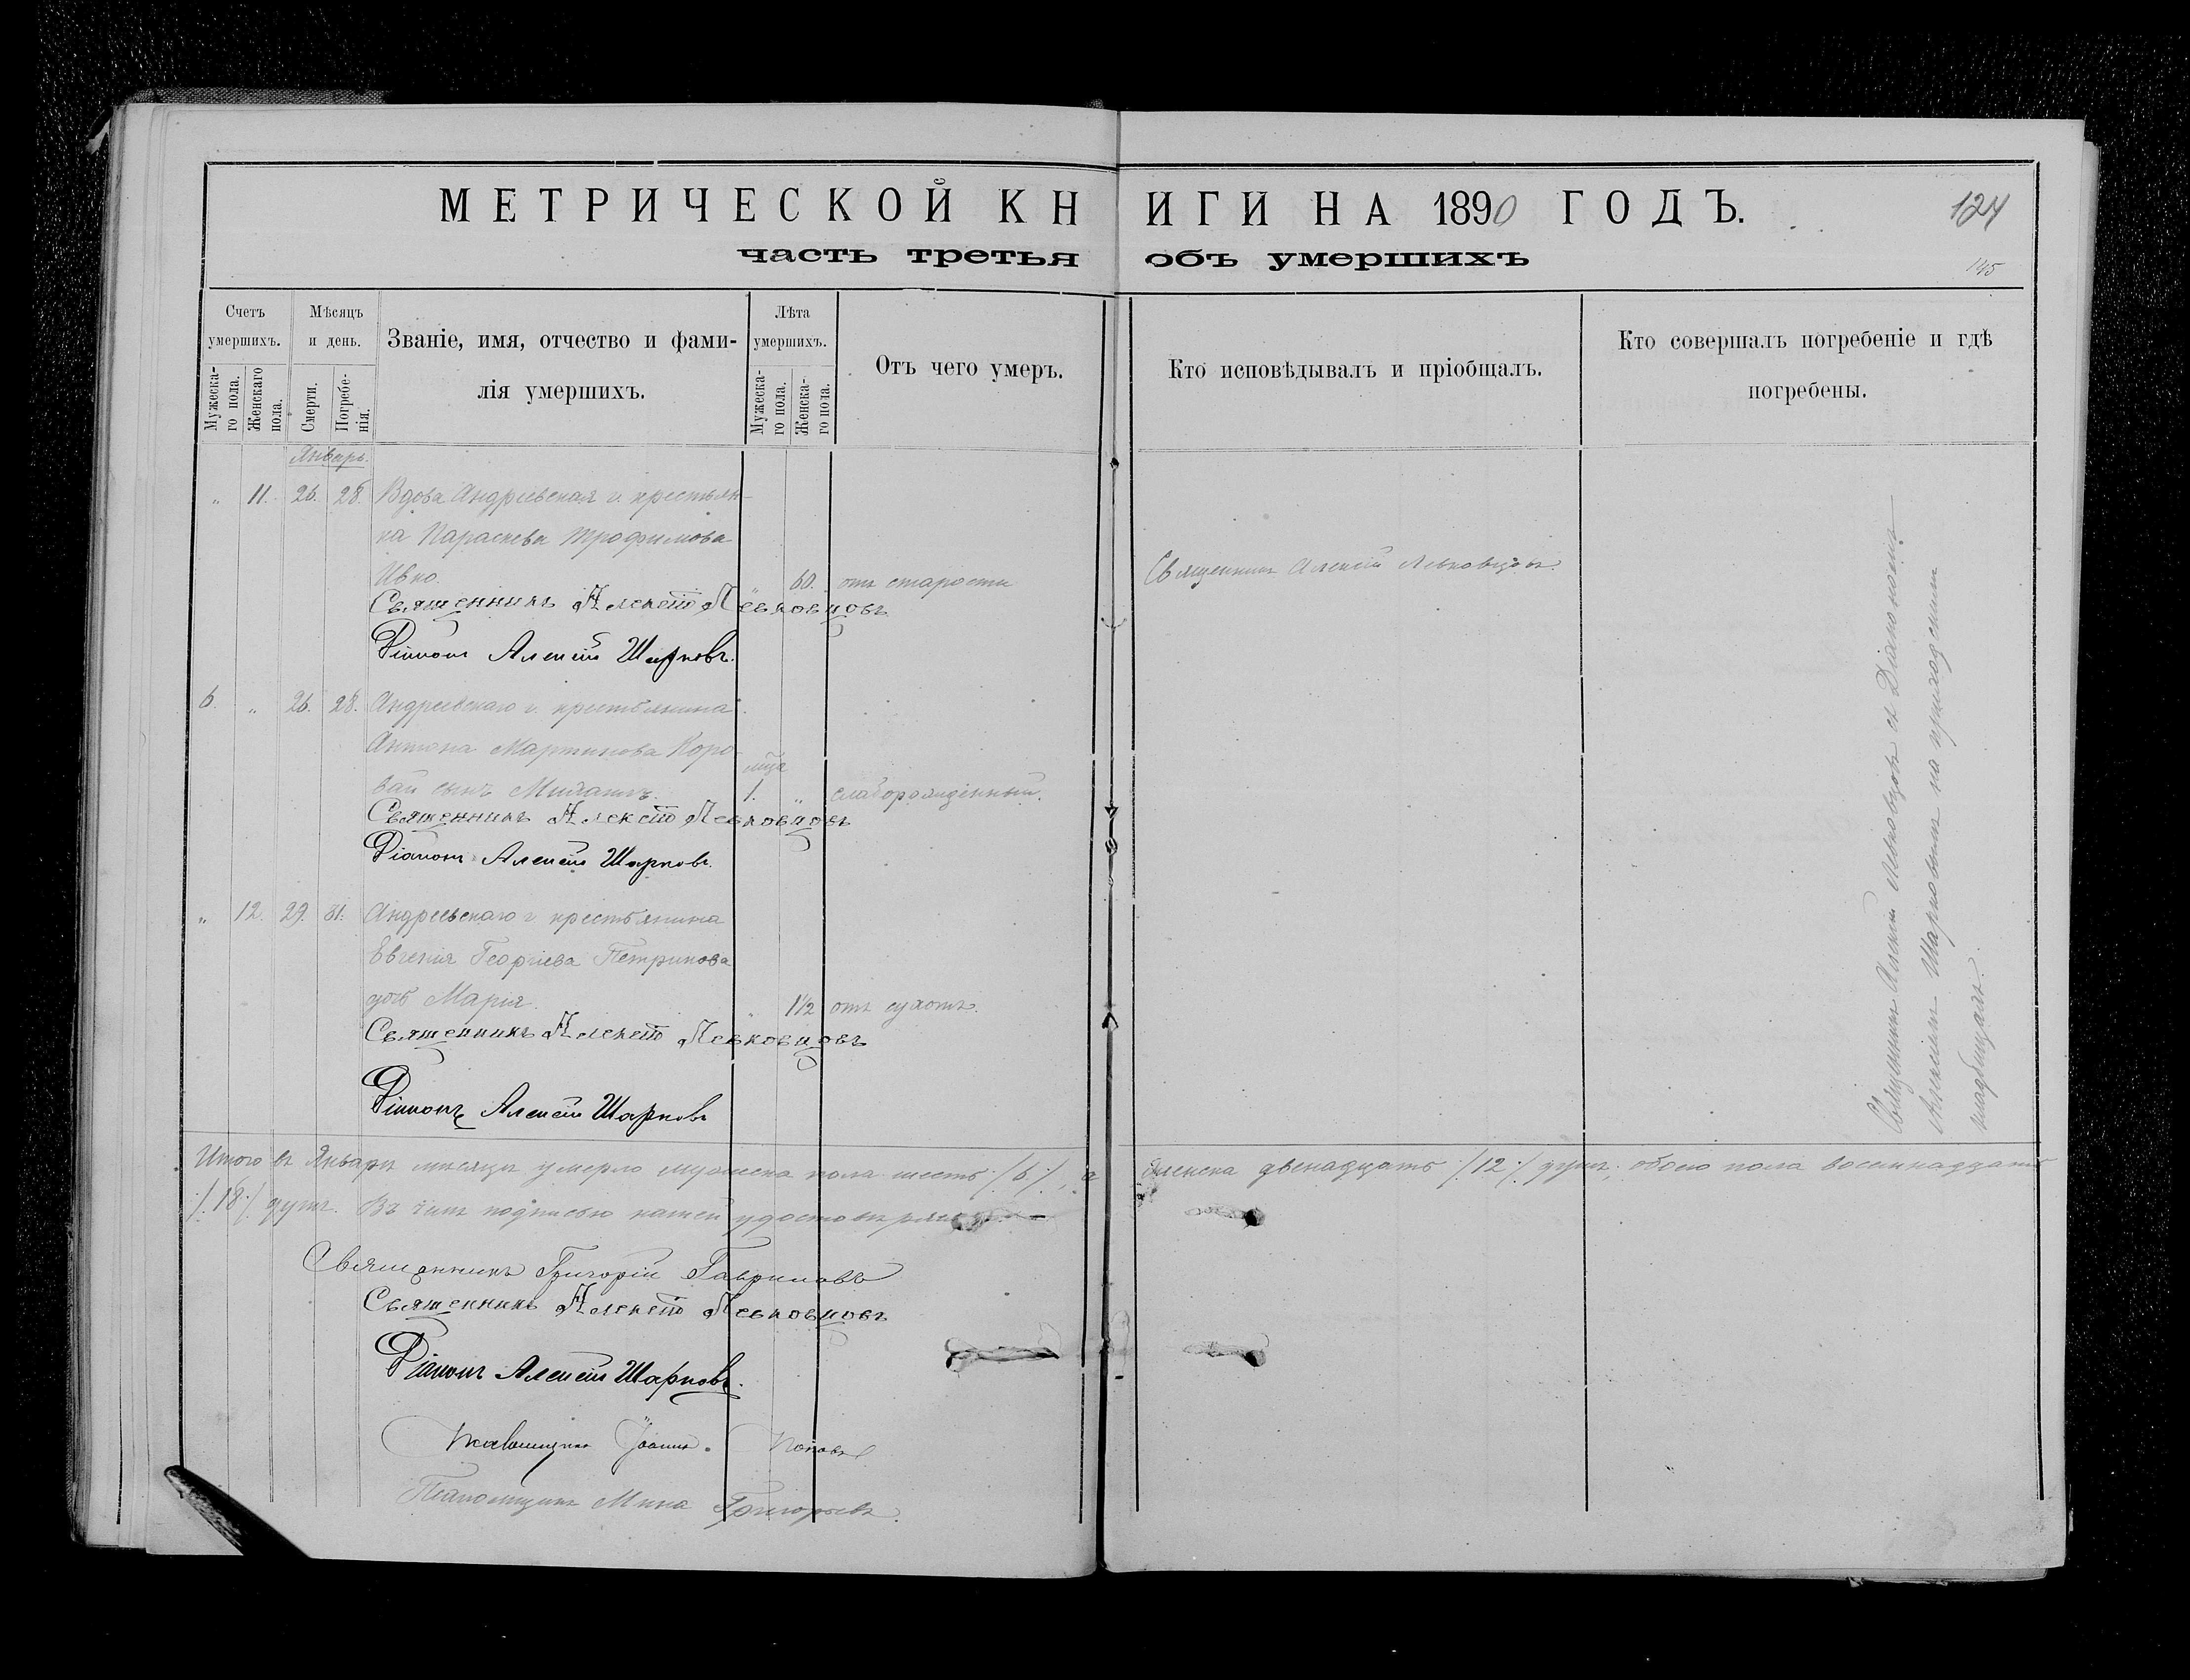 МЕТРИЧЕСКОЙ КНИГИ НА 1890 ГОДЪ.
124
часть третья объ умершихъ
145
Счетъ умершихъ.
Мужеска-го пола.
Женскаго пола.
Мѣсяцъ и день.
Смерти.
Погребе-нія.
Званіе, имя, отчество и фами-
лія умершихъ.
Лѣта умершихъ.
Мужеска-го пола.
Женска-го пола.
Отъ чего умеръ.
Кто исповѣдывалъ и пріобщалъ.
Кто совершалъ погребеніе и гдѣ
погребены.
Январь.
" 11. 26. 28. Вдова Андреевская г. крестьян-
ка Параскева Трофимова
Ивко. " 60. отъ старости
Священникъ Алексій Левковцовъ.
Священникъ Алексій Левковцовъ
Діаконъ Алексій Шарковъ.
6. " 26. 28. Андреевскаго г. крестьянина
Антона Мартинова Коро-
вай сынъ Михаилъ. мца 1. " слаборожденный.
Священникъ Алексій Левковцовъ
Діаконъ Алексій Шарковъ.
" 12. 29. 31. Андреевскаго г. крестьянина
Евгенія Георгіева Петрикова
дочь Марія. " 1½ отъ сухотъ.
Священникъ Алексій Левковцовъ
Діаконъ Алексій Шарковъ
Священникъ Алексій Левковцовъ съ Діакономъ
Алексіемъ Шарковымъ на приходскомъ
кладбищѣ.
Итого въ Январѣ мѣсяцѣ умерло мужеска пола шесть /.6./, а женска двенадцать /.12./ душъ, обоего пола восемнадцать
/.18./ душъ. Въ чемъ подписью нашей удостовѣряемъ.
Священникъ Григорій Гавриловъ
Священникъ Алексій Левковцовъ
Діаконъ Алексій Шарковъ.
Псаломщикъ Іоаннъ Поповъ
Псаломщикъ Мина Григорьевъ.